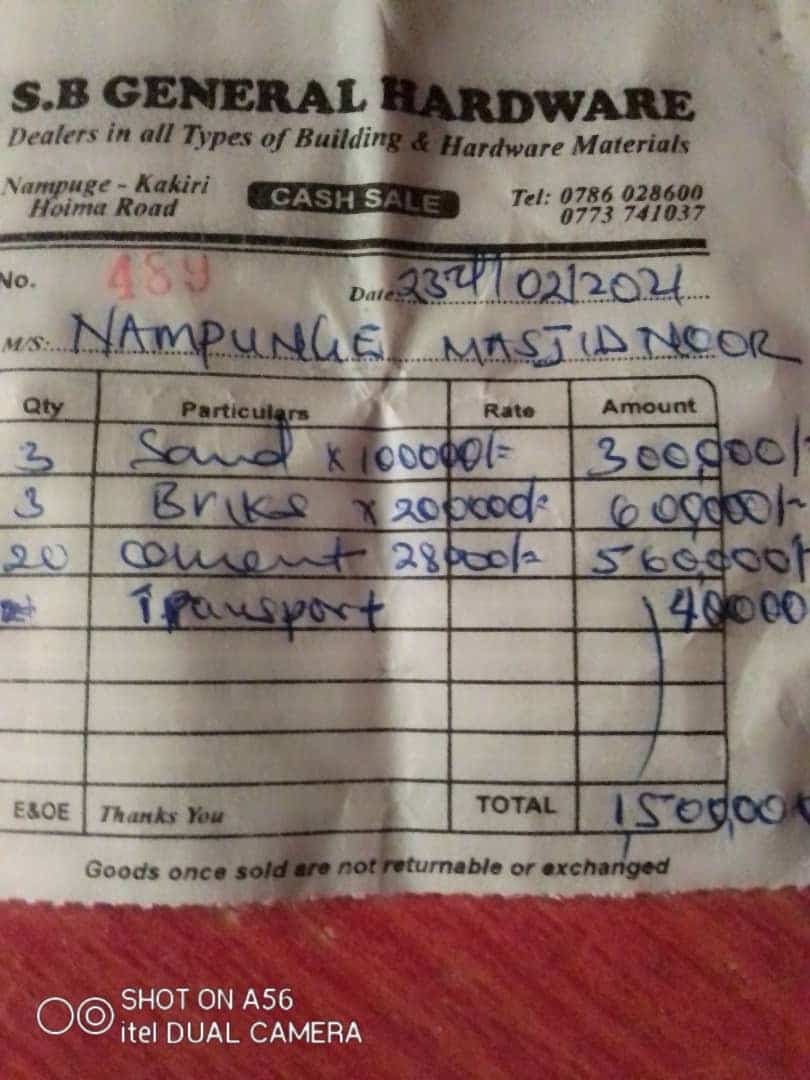 S.B GENERAL HARDWARE
Dealers in all Types of Building & Hardware Materials
Nampuge - Kakiri
Hoima Road
CASH SALE
Tel: 0786 028600
0773 741037
No. 489
Date: 23rd/02/2021
M/S: NAMPUNGE MASJID NOOR
Qty Particulars Rate Amount
3 Sand x 100000/= 300,000/=
3 Briks x 200000/= 600,000/=
20 Cement 28000/= 560,000/=
Transport 40000
E&OE Thanks You TOTAL 1,500,00
Goods once sold are not returnable or exchanged
SHOT ON A56
itel DUAL CAMERA